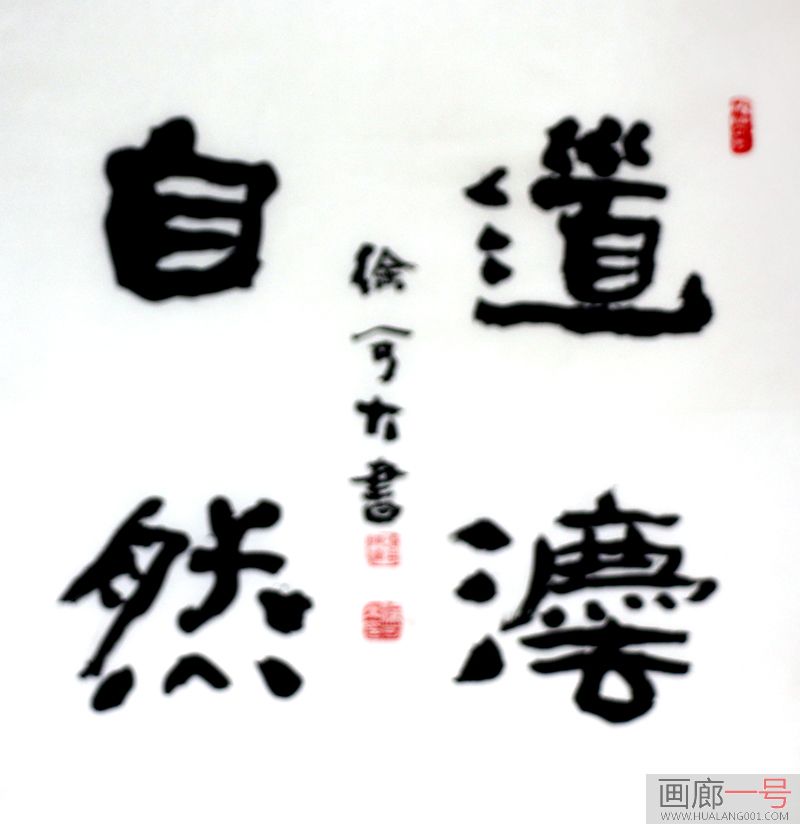 道灋
自然
徐書
画廊一号
WWW.HUALANG001.COM